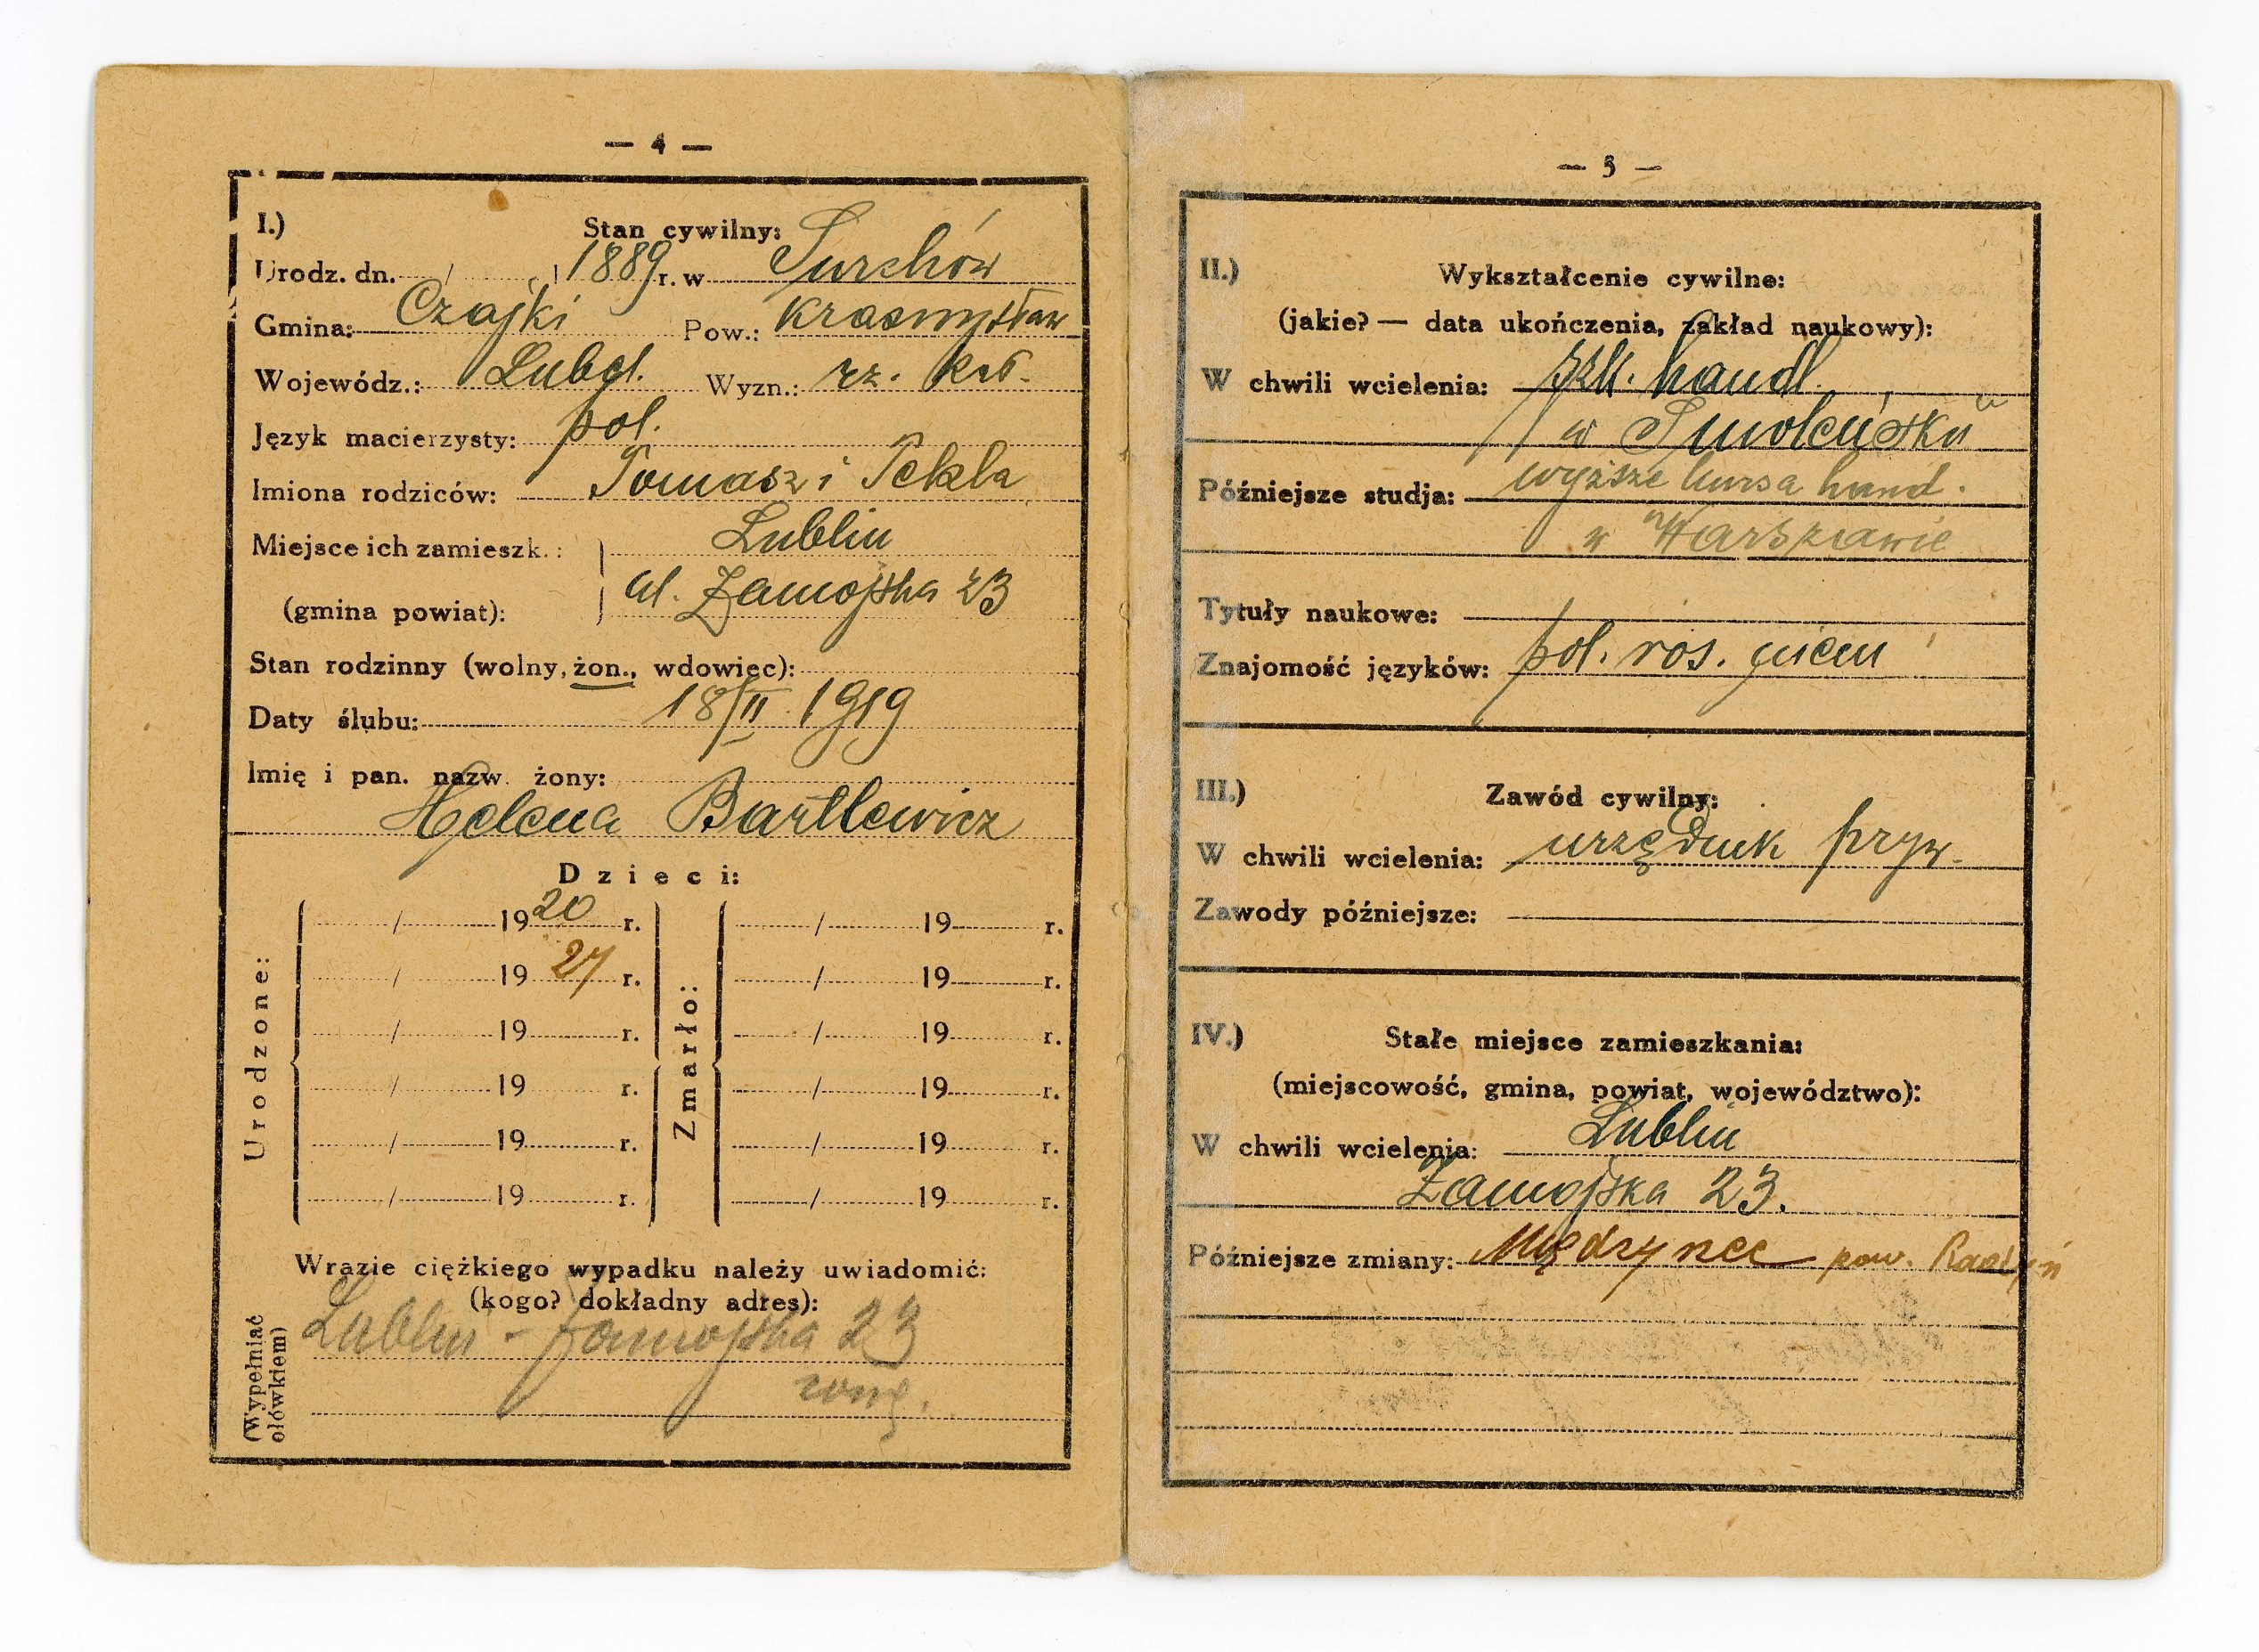 — 4 —
I.) Stan cywilny:
Urodz. dn. / 1889 r. w Surchów
Gmina: Czajki Pow.: Krasnystaw
Wojewódz.: Lubel. Wyzn.: rz. kat.
Język macierzysty: pol.
Imiona rodziców: Tomasz i Tekla
Miejsce ich zamieszk.: Lublin
(gmina powiat): ul. Zamojska 23
Stan rodzinny (wolny, żon., wdowiec):
Daty ślubu: 18/II 1919
Imię i pan. nazw. żony:
Helena Bartlewicz
Dzieci:
Urodzone:
/ 1920 r.
/ 1927 r.
/ 19 r.
/ 19 r.
/ 19 r.
/ 19 r.
Zmarło:
/ 19 r.
/ 19 r.
/ 19 r.
/ 19 r.
/ 19 r.
/ 19 r.
Wrazie ciężkiego wypadku należy uwiadomić:
(kogo? dokładny adres):
(Wypełniać
ołówkiem)
Lublin - Zamojska 23
żonę.
— 5 —
II.) Wykształcenie cywilne:
(jakie? — data ukończenia, zakład naukowy):
W chwili wcielenia: szk. handl.
w Smoleńsku
Późniejsze studja: wyższe kursa hand.
w Warszawie
Tytuły naukowe:
Znajomość języków: pol. ros. niem
III.) Zawód cywilny:
W chwili wcielenia: urzędnik pryw.
Zawody późniejsze:
IV.) Stałe miejsce zamieszkania:
(miejscowość, gmina, powiat, województwo):
W chwili wcielenia: Lublin
Zamojska 23.
Późniejsze zmiany: Międzyrzec pow. Radzyń